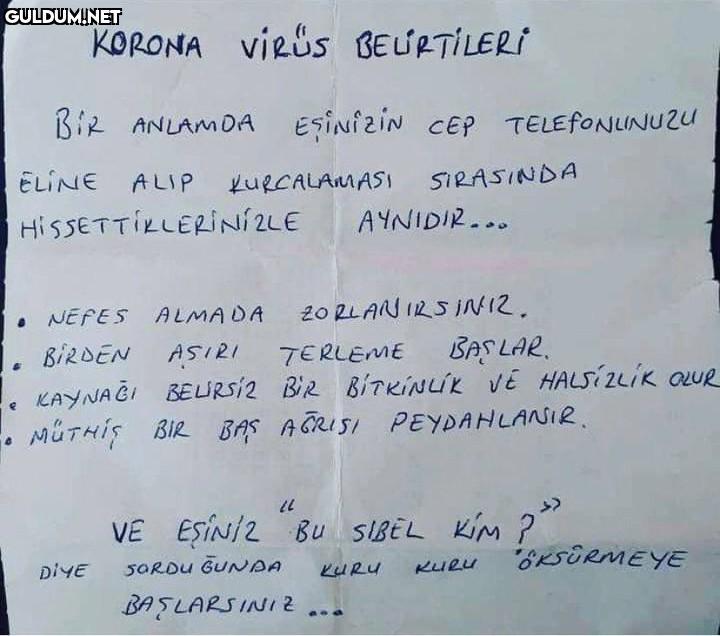 GULDUM.NET
KORONA VİRÜS BELİRTİLERİ
BİR ANLAMDA EŞİNİZİN CEP TELEFONUNUZU
ELİNE ALIP KURCALAMASI SIRASINDA
HİSSETTİKLERİNİZLE AYNIDIR...
• NEFES ALMADA ZORLANIRSINIZ.
• BİRDEN AŞIRI TERLEME BAŞLAR.
• KAYNAĞI BELİRSİZ BİR BİTKİNLİK VE HALSİZLİK OLUR
• MÜTHİŞ BİR BAŞ AĞRISI PEYDAHLANIR.
VE EŞİNİZ "BU SIBEL KİM?"
DİYE SORDUĞUNDA KURU KURU ÖKSÜRMEYE
BAŞLARSINIZ...